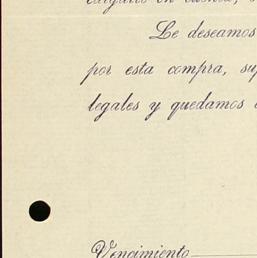 en
Le deseamos
por esta compra, su
legales y quedamos
Vencimiento